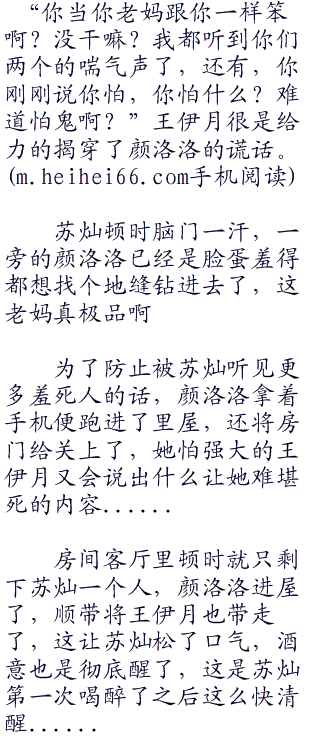 “你当你老妈跟你一样笨
啊？没干嘛？我都听到你们
两个的喘气声了，还有，你
刚刚说你怕，你怕什么？难
道怕鬼啊？”王伊月很是给
力的揭穿了颜洛洛的谎话。
(m.heihei66.com手机阅读)
苏灿顿时脑门一汗，一
旁的颜洛洛已经是脸蛋羞得
都想找个地缝钻进去了，这
老妈真极品啊
为了防止被苏灿听见更
多羞死人的话，颜洛洛拿着
手机便跑进了里屋，还将房
门给关上了，她怕强大的王
伊月又会说出什么让她难堪
死的内容......
房间客厅里顿时就只剩
下苏灿一个人，颜洛洛进屋
了，顺带将王伊月也带走
了，这让苏灿松了口气，酒
意也是彻底醒了，这是苏灿
第一次喝醉了之后这么快清
醒......